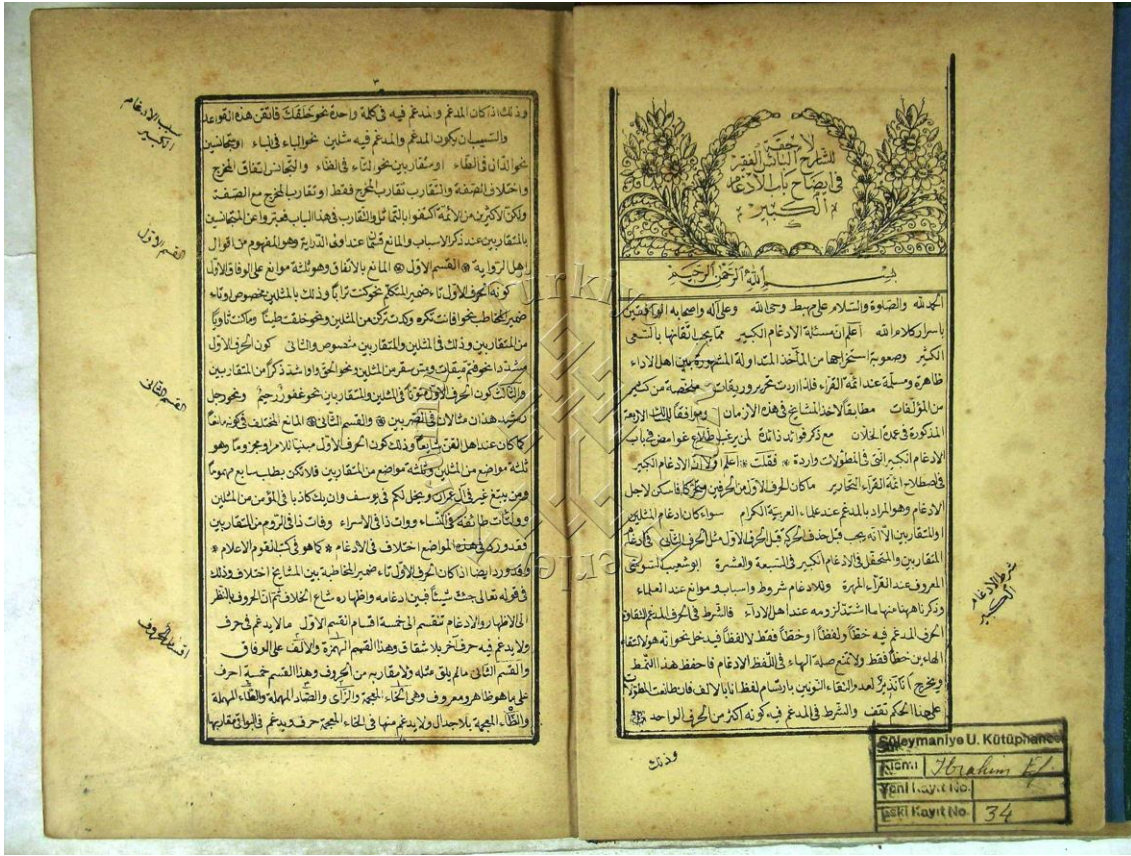 لاحقة
للشارح البائس الفقير
فى ايضاح باب الادغام
الكبير
بسم الله الرحمن الرحيم
الحمد لله والصلوة والسلام على مهبط وحى الله وعلى آله واصحابه الواقفين
باسرار كلام الله اعلم ان مسئلة الادغام الكبير مما يجب تقانها بالسعى
الكثير وصعوبة استخراجها من المأخذ المتداولة المشهورة بين اهل الاداء
ظاهرة ومسلمة عند ائمة القراء فلذا اردت تحرير وريقات ملخصة من كثير
من المؤلفات مطابقا لاخذ المشايخ فى هذه الازمان وموافقا للمسالك الاربعة
المذكورة فى عمدة الخلان مع ذكر فوائد زائدة لمن يرغب اطلاع غوامض فى باب
الادغام الكبير التى فى المطولات واردة فقلت اعلم اولا ان الادغام الكبير
فى اصطلاح ائمة القراء النحارير ما كان الحرف الاول من الحرفين متحركا فاسكن لاجل
الادغام وهو المراد بالمدغم عند علماء العربية الكرام سواء كان ادغام المثلين
او المتقاربين الا انه يجب قبل حذف الحركة قلب الحرف الاول مثل الحرف الثانى فى ادغام
المتقاربين والمحتفل فى الادغام الكبير فى السبعة والعشرة ابو شعيب السوسى
المعروف عند القراء المهرة وللادغام شروط واسباب وموانع عند العلماء
وذكرنا ههنا منها ما اشتد لزومه عند اهل الاداء فالشرط فى الحرف المدغم التقاؤه
الحرف المدغم فيه خطا ولفظا او خطا فقط لا لفظا فيدخل نحو انه هو لالتقاء
الهاءين خطا فقط ولا تمنع صلة الهاء فى اللفظ الادغام فاحفظ هذا النمط
ويخرج انا نذير لعدم التقاء النونين بارتسام لفظ انا بالالف فان طالعت المطولات
على هذا الحكم تقف والشرط فى المدغم فيه كونه اكثر من الحرف الواحد
وذلك
شرط الادغام
الكبير
Süleymaniye U. Kütüphanesi
Kısmı İbrahim Ef.
Yeni Kayıt No.
Eski Kayıt No. 34
٣
وذلك اذا كان المدغم والمدغم فيه فى كلمة واحدة نحو خلقك فاتقن هذه القواعد
والسبب ان يكون المدغم والمدغم فيه مثلين نحو الباء فى الباء او متجانسين
نحو الذال فى الظاء او متقاربين نحو الثاء فى الظاء والتجانس اتفاق المخرج
واختلاف الصفة والتقارب تقارب المخرج فقط او تقارب المخرج مع الصفة
ولكن الاكثرين من الائمة اكتفوا بالتماثل والتقارب فى هذا الباب فعبروا عن المتجانسين
بالمتقاربين عند ذكر الاسباب والمانع قسمان عند اولى الدراية وهو المفهوم من اقوال
اهل الرواية القسم الاول المانع بالاتفاق وهو ثلثة موانع على الوفاق الاول
كونه الحرف الاول تاء ضمير المتكلم نحو كنت ترابا وذلك بالمثلين مخصوص او تاء
ضمير المخاطب نحو افانت تكره وكدت تركن من المثلين ونحو خلقت طينا وما كنت ثاويا
من المتقاربين وذلك فى المثلين والمتقاربين منصوص والثانى كون الحرف الاول
مشددا نحو فتم ميقات ومس سقر من المثلين ونحو الحق واو اشد ذكرا من المتقاربين
والثالث كون الحرف الاول منونا فى المثلين والمتقاربين نحو غفور رحيم ونحو رجل
رشيد هذان مثالان فى الضربين والقسم الثانى المانع المختلف فى كونه مانعا
كما كان عند اهل الفن شايعا وذلك كون الحرف الاول مبنيا للامر او مجزوما وهو
ثلثة مواضع من المثلين وثلثة مواضع من المتقاربين فلا تكن بطلب سايع مهموما
ومن يبتغ غير فى آل عمران ويخل لكم فى يوسف وان يك كاذبا فى المؤمن من المثلين
ولتأت طائفة فى النساء وءات ذا فى الاسراء وفآت ذا فى الروم من المتقاربين
وقد ورد فى هذه المواضع اختلاف فى الادغام كما هو فى كتب القوم الاعلام
وقد ورد ايضا اذا كان الحرف الاول تاء ضمير المخاطبة بين المشايخ اختلاف وذلك
فى قوله تعالى جئت شيئا فبين ادغامه واظهاره شاع الخلاف ثم ان الحروف بالنظر
الى الاظهار والادغام تنقسم الى خمسة اقسام القسم الاول ما لا يدغم فى حرف
ولا يدغم فيه حرف آخر بلا شقاق وهذا القسم الهمزة والالف على الوفاق
والقسم الثانى ما لم يلق مثله ولا مقاربه من الحروف وهذا القسم خمسة احرف
على ما هو ظاهر ومعروف وهى الخاء المعجمة والزاى والصاد المهملة والطاء المهملة
والظاء المعجمة بلا جدال ولا يدغم منها فى الخاء المعجمة حرف ويدغم فى البواقى مقاربها
سبب الادغام
الكبير
القسم الاول
القسم الثانى
اقسام الحروف